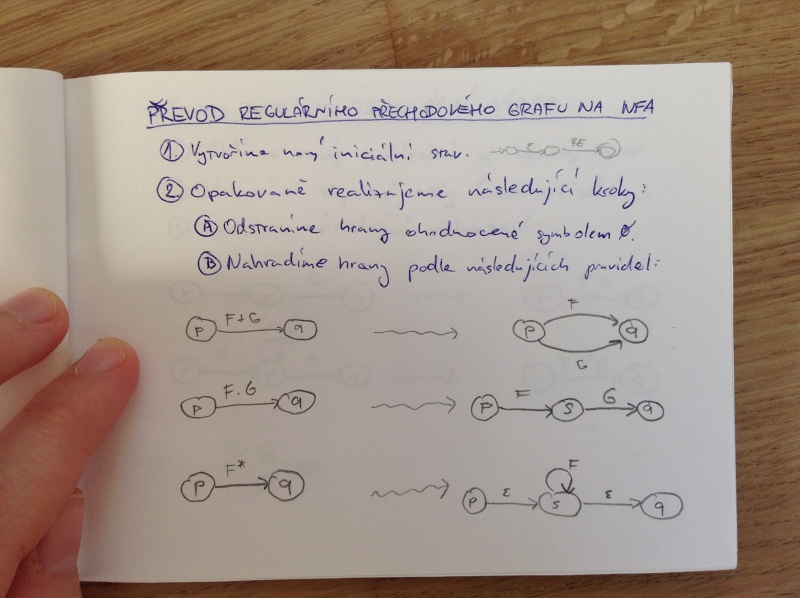 PŘEVOD REGULÁRNÍHO PŘECHODOVÉHO GRAFU NA NFA
① Vytvoříme nový iniciální stav. ε RE
② Opakovaně realizujeme následující kroky:
Ⓐ Odstraníme hrany ohodnocené symbolem ∅.
Ⓑ Nahradíme hrany podle následujících pravidel:
p F+G q p F G q
p F.G q p F s G q
p F* q p ε s F ε q